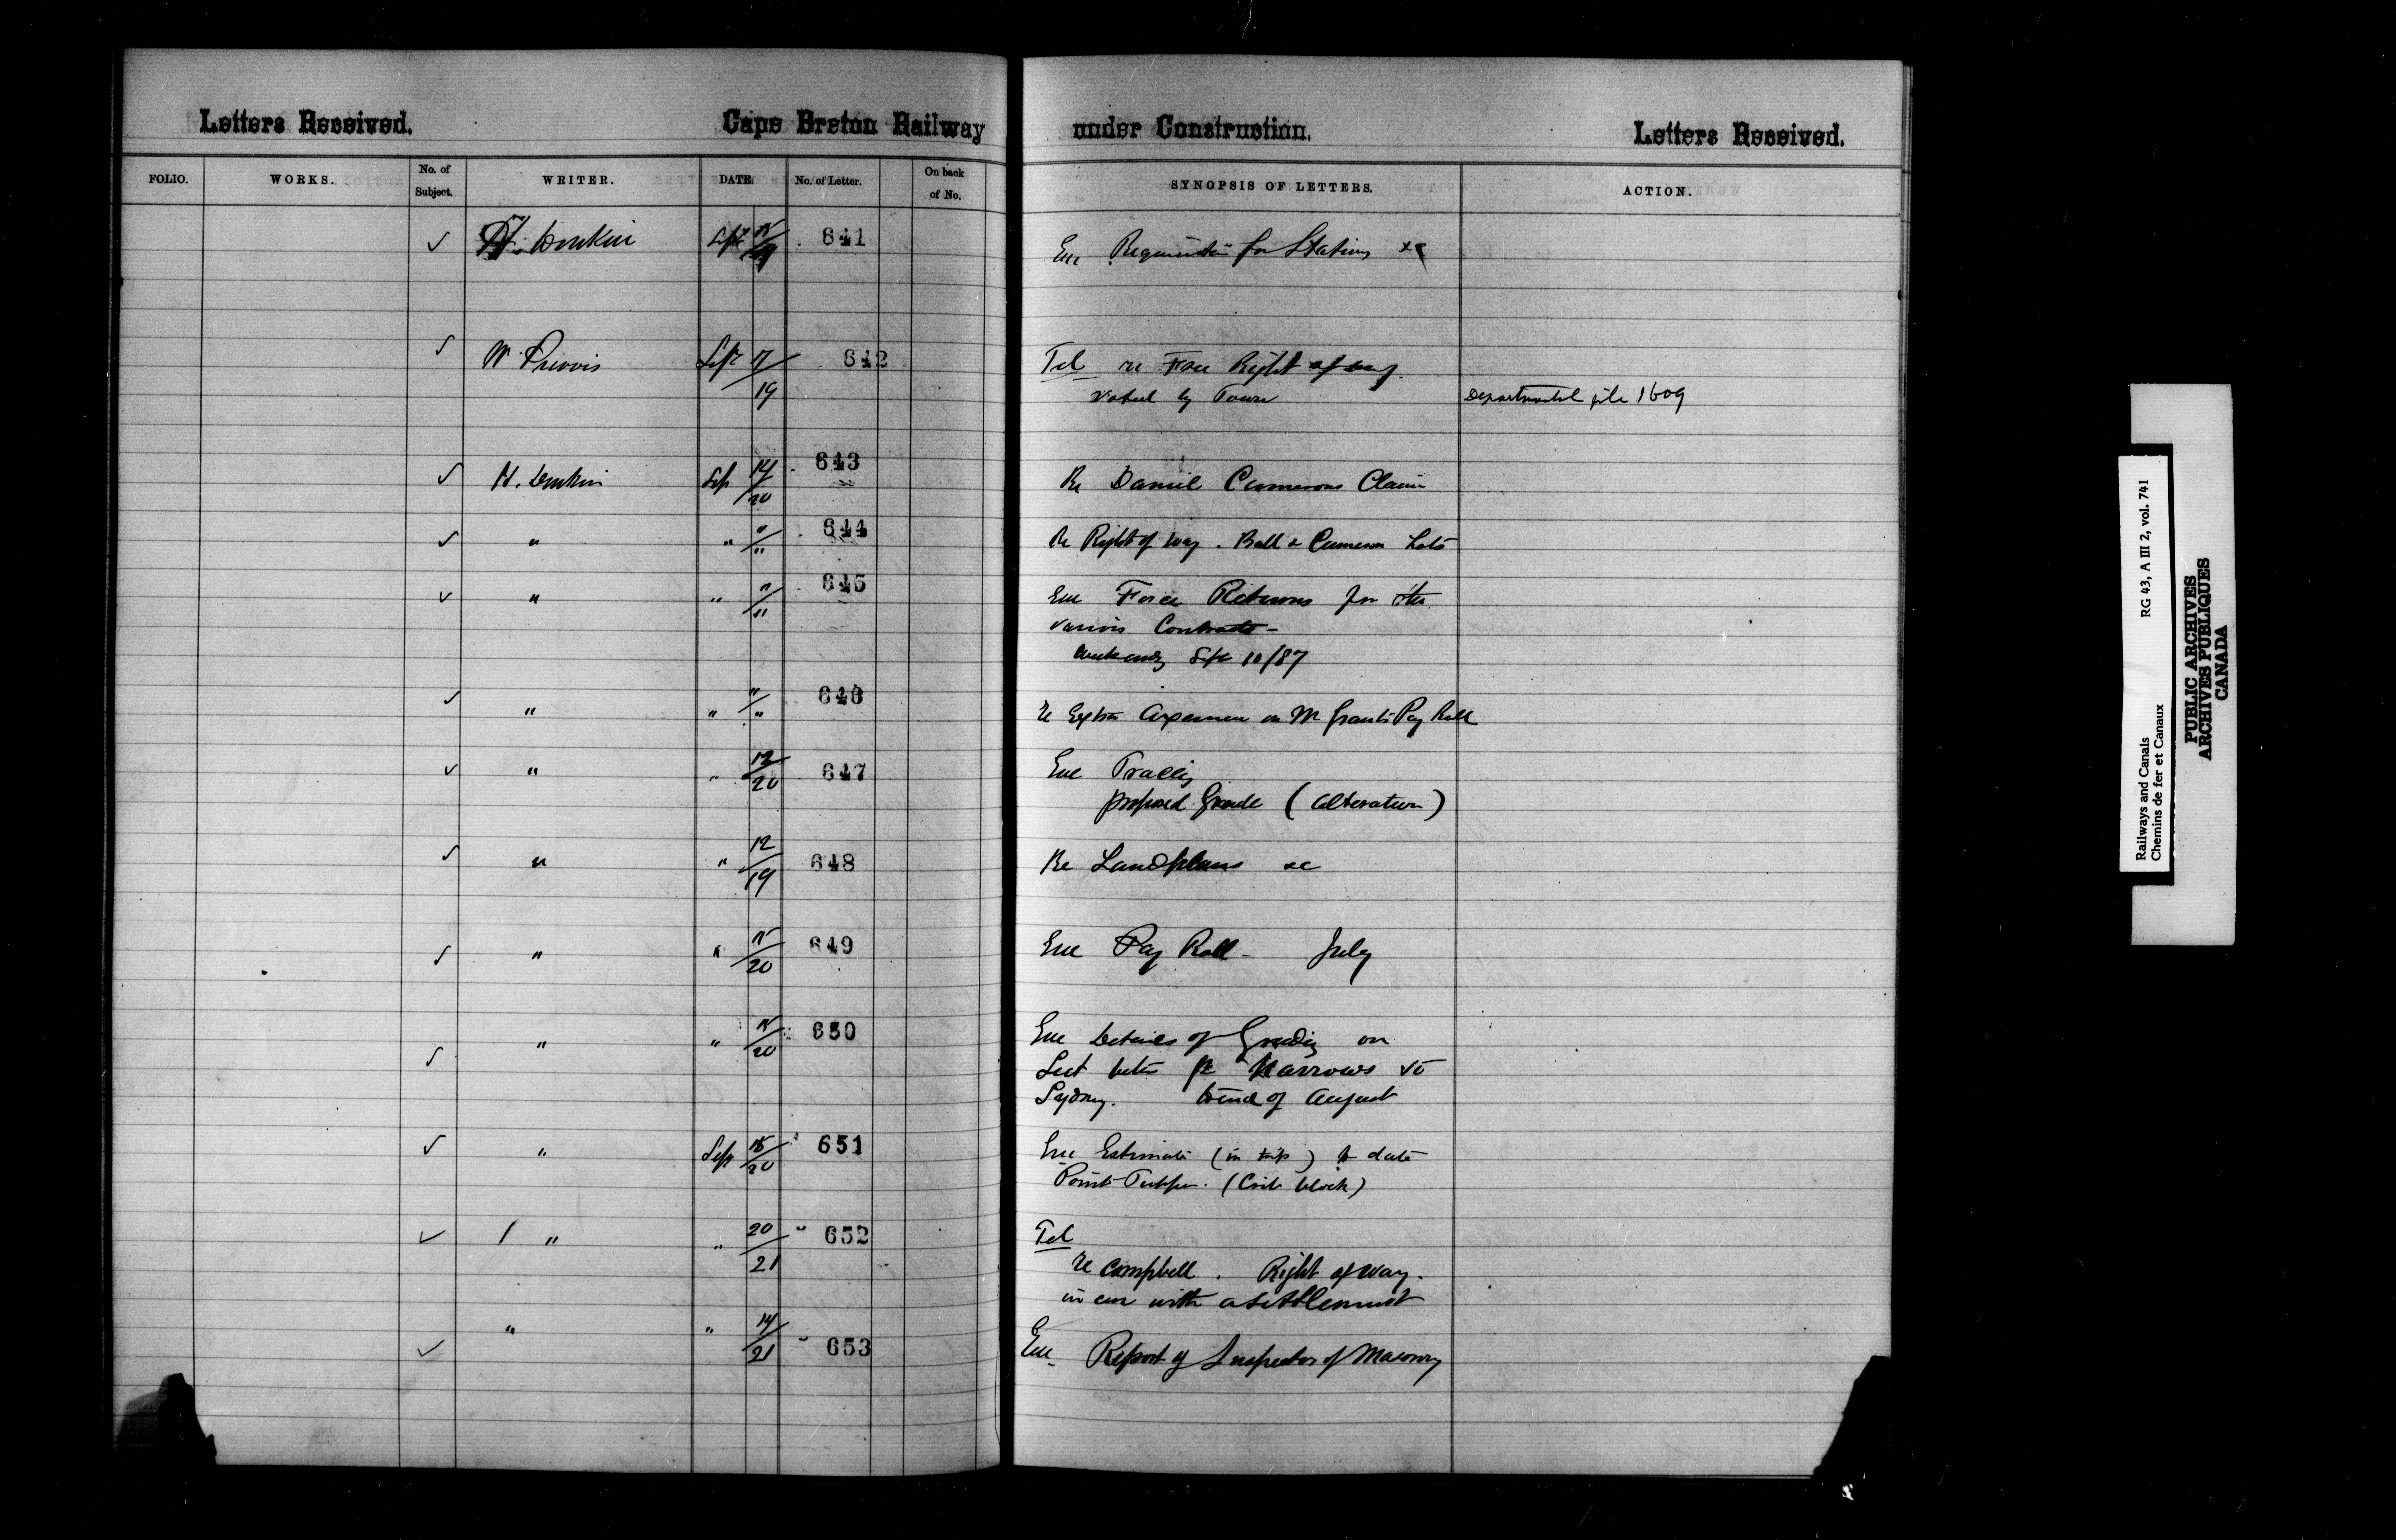 Letters Received. Cape Breton Railway under Construction. Letters Received.
FOLIO. WORKS. No. of Subject. WRITER. DATE. No. of Letter. On back of No. SYNOPSIS OF LETTERS. ACTION.
✓ H. Donkin Sept 15/19 641 Enc Requisition for Stationy &c
✓ W Purvis Sept 17/19 642 Tel re Free Right of way
voted by Town Departmental file 1609
✓ H. Donkin Sep 14/20 643 Re Daniel Camerons Claim
✓ " " "/" 644 Re Right of Way. Ball & Cameron Lots
✓ " " "/" 645 Enc Force Returns for the
various Contracts -
Week endg Sept 10/87
✓ " " "/" 646 re Extra Axemen on Mr Grants Pay Roll
✓ " " 12/20 647 Enc Tracing
proposed Grade (alteration)
✓ " " 12/19 648 Re Landplans &c
✓ " " 15/20 649 Enc Pay Roll - July
✓ " " 15/20 650 Enc Details of Grading on
Sect betn Narrows to
Sydney. to end of August
✓ " Sep 15/20 651 Enc Estimate (in ) to date
Point Tupper. (Crib block)
✓ " " 20/21 652 Tel
re Campbell. Right of Way.
in con with a settlement
✓ " " 14/21 653 Enc Report of Inspector of Masonry
Railways and Canals RG 43, A III 2, vol. 741
Chemins de fer et Canaux
PUBLIC ARCHIVES
ARCHIVES PUBLIQUES
CANADA